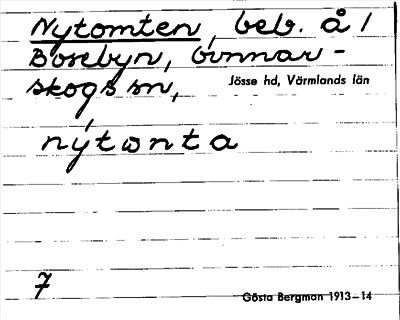 Nytomten, beb. å 1
Bosebyn, Gunnar-
skogs sn,
Jösse hd, Värmlands län
nýtωnta
7
Gösta Bergman 1913–14